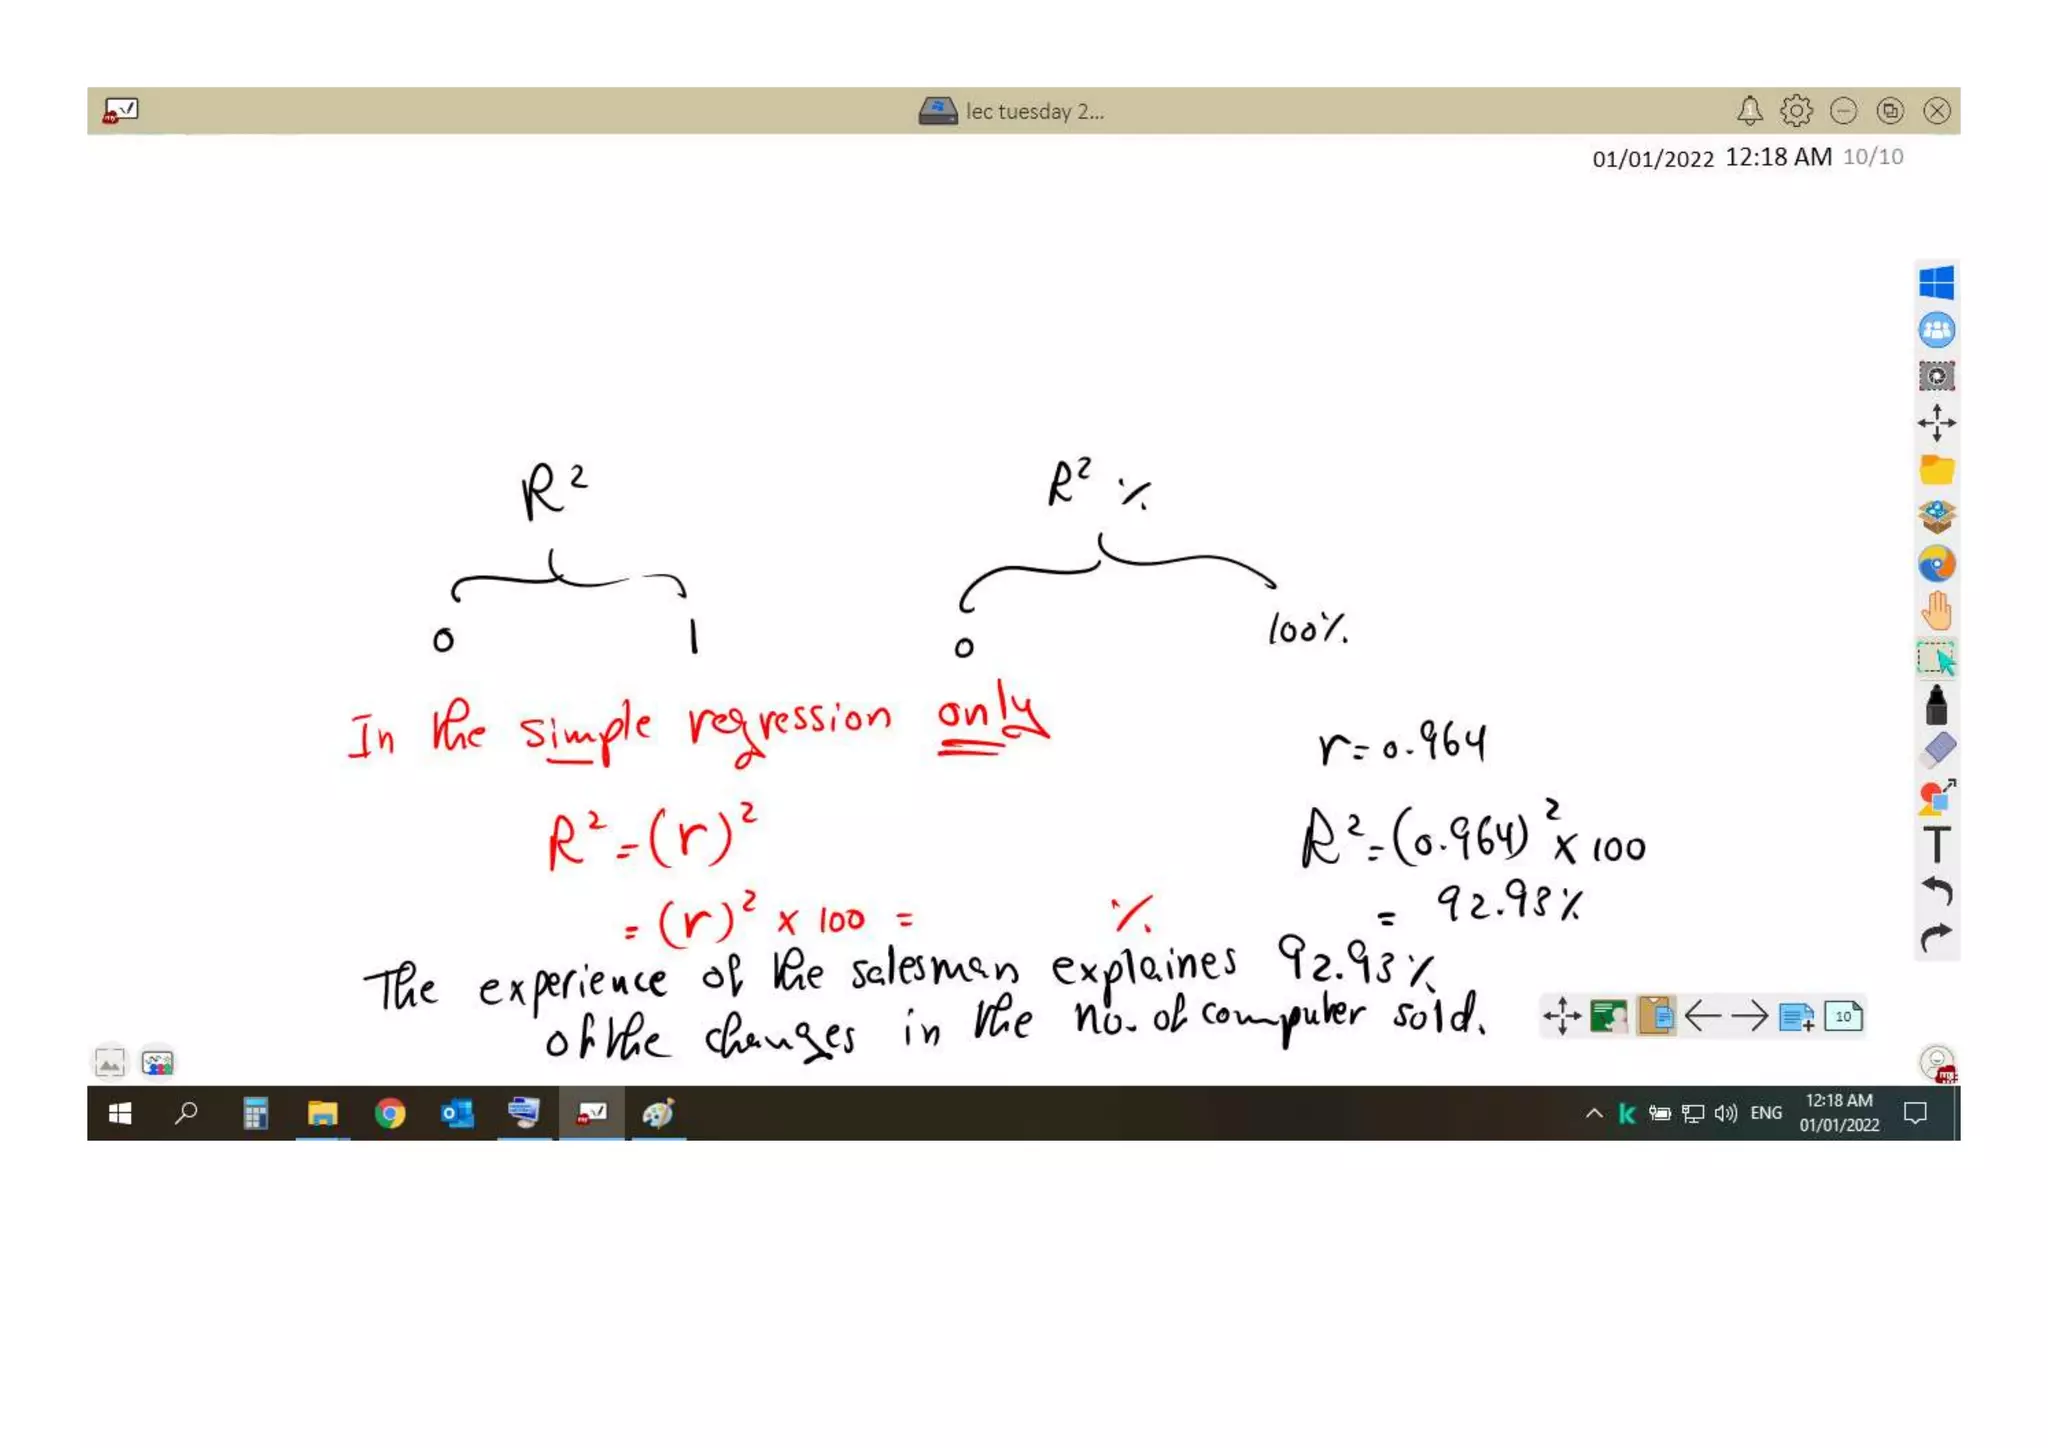 lec tuesday 2...
01/01/2022 12:18 AM 10/10
R² R² %
0 1 0 100%
In the simple regression only
r = 0.964
R² = (r)²
R² = (0.964)² × 100
= (r)² × 100 = %
= 92.93%
The experience of the salesman explaines 92.93%
of the changes in the no. of computer sold.
10
ENG 12:18 AM
01/01/2022